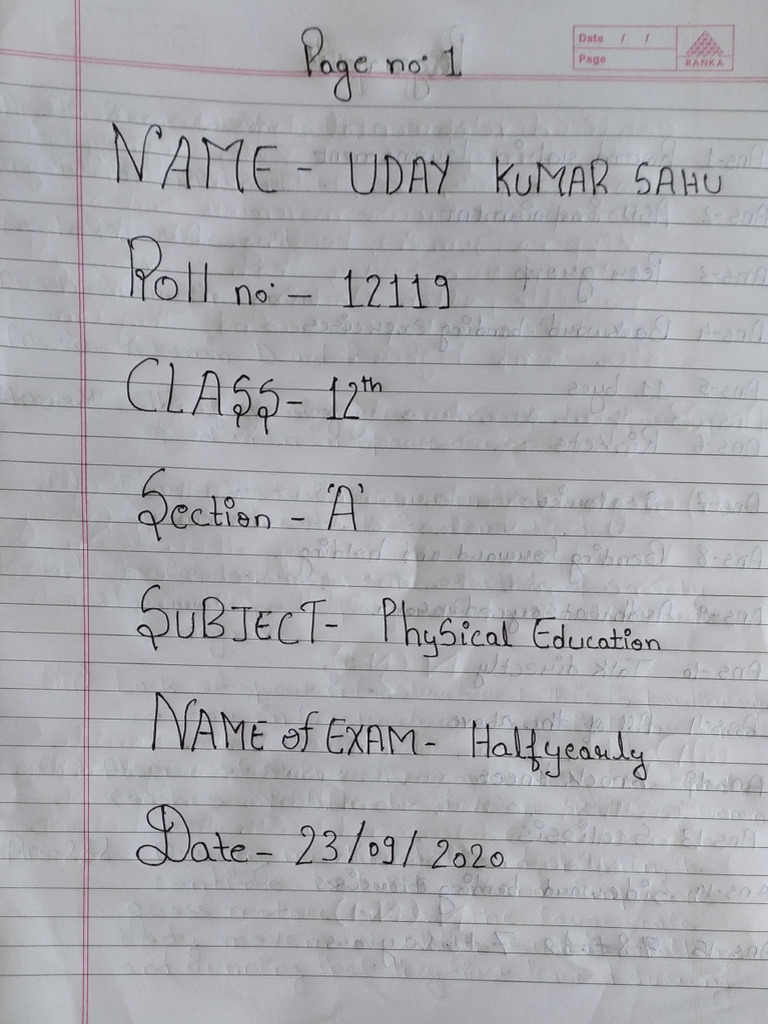 Page no: 1
Date / /
Page
RANKA
NAME - UDAY KUMAR SAHU
Roll no: - 12119
CLASS - 12th
Section - 'A'
SUBJECT - Physical Education
NAME of EXAM - Halfyearly
Date - 23/09/2020